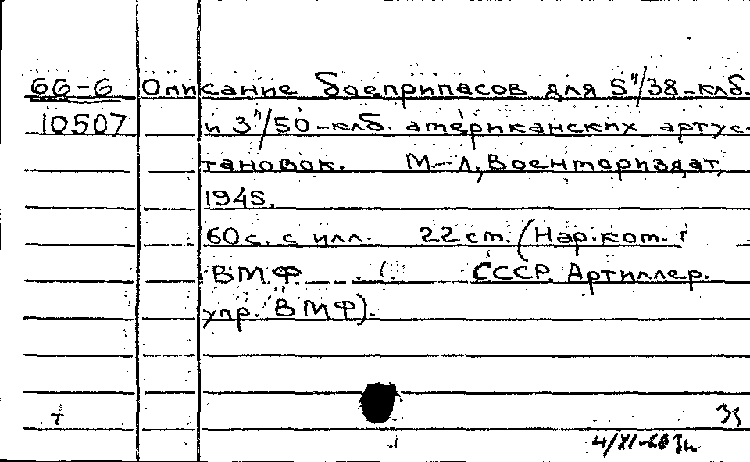 66-6 Описание боеприпасов для 5"/38-клб.
10507 и 3"/50-клб. американских артус
тановок. М-Л, Военмориздат,
1945.
60с. с илл. 22 ст. (Нар.ком.
ВМФ СССР. Артиллер.
упр. ВМФ).
4/XI-68